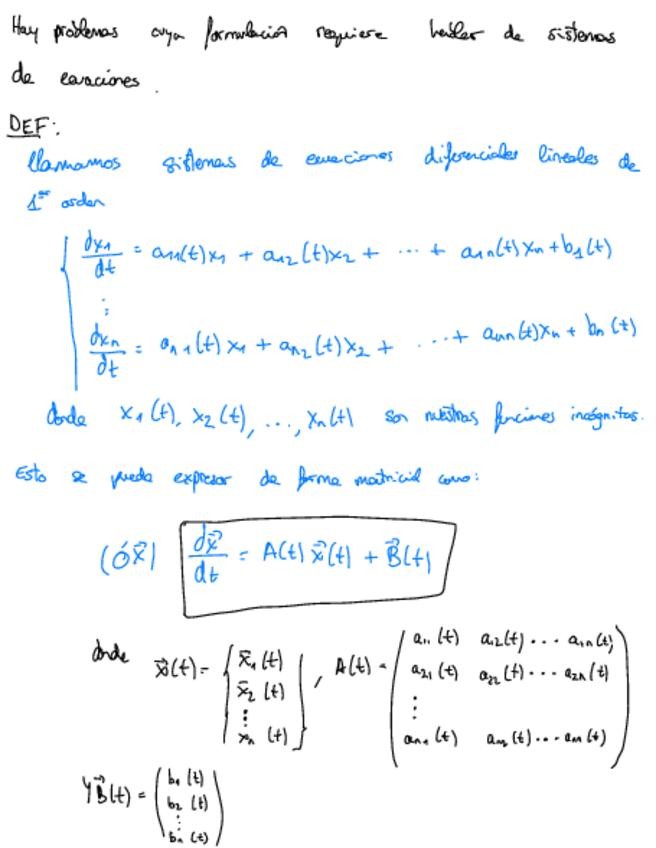 Hay problemas cuya formulación requiere hablar de sistemas
de ecuaciones.
DEF:
Llamamos sistemas de ecuaciones diferenciales lineales de
1er orden
dx₁/dt = a₁₁(t)x₁ + a₁₂(t)x₂ + ... + a₁ₙ(t)xₙ + b₁(t)
⋮
dxₙ/dt = aₙ₁(t)x₁ + aₙ₂(t)x₂ + ... + aₙₙ(t)xₙ + bₙ(t)
donde x₁(t), x₂(t), ..., xₙ(t) son nuestras funciones incógnitas.
Esto se puede expresar de forma matricial como:
(ó x⃗) dx⃗/dt = A(t) x⃗(t) + B⃗(t)
donde x⃗(t) = { x̄₁(t) x̄₂(t) ⋮ xₙ(t) }, A(t) = ( a₁₁(t) a₁₂(t) ... a₁ₙ(t)
a₂₁(t) a₂₂(t) ... a₂ₙ(t)
⋮
aₙ₁(t) aₙ₂(t) ... aₙₙ(t) )
Y B⃗(t) = ( b₁(t)
b₂(t)
⋮
bₙ(t) )